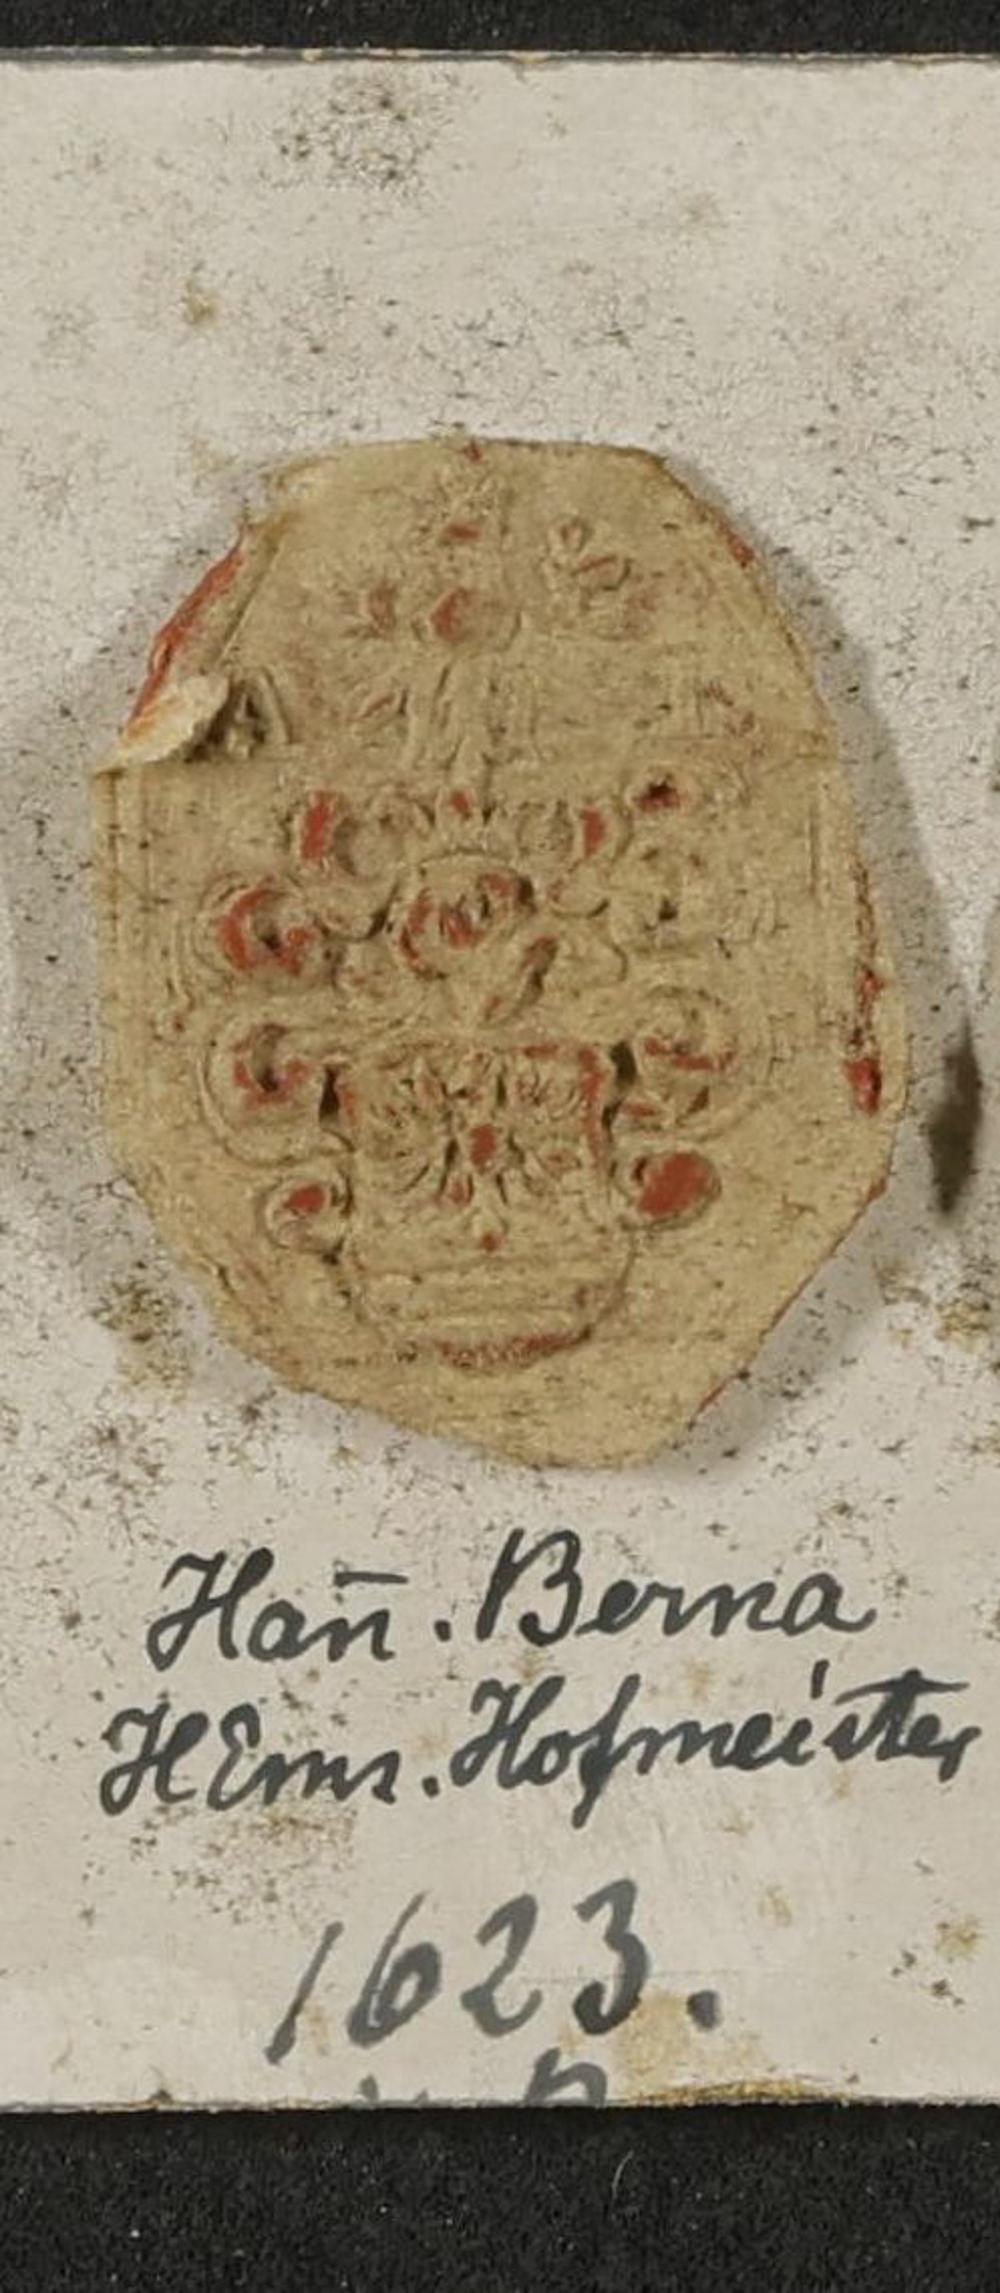 Han̄. Berna
HEms. Hofmeister
1623.